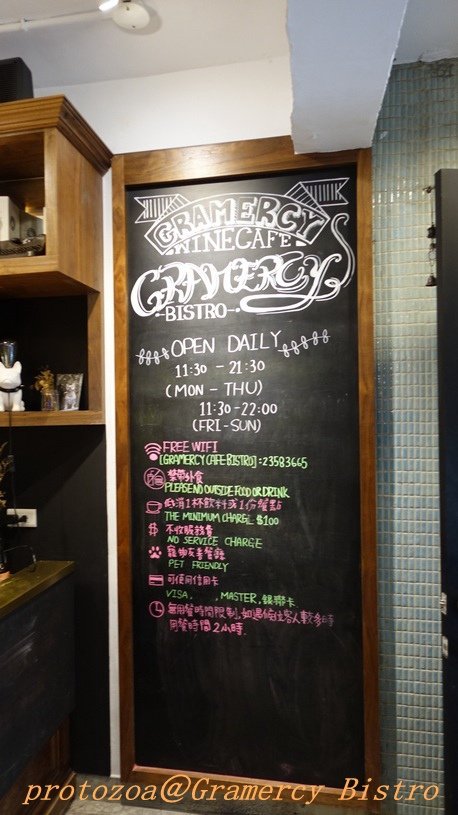 GRAMERCY
WINECAFE
GRAMERCY
BISTRO
OPEN DAILY
11:30 - 21:30
(MON - THU)
11:30 - 22:00
(FRI - SUN)
FREE WIFI
[GRAMERCY CAFE BISTRO]:23583665
禁帶外食
PLEASE NO OUTSIDE FOOD OR DRINK
低消1杯飲料或1份餐點
THE MINIMUM CHARGE $100
$ 不收服務費
NO SERVICE CHARGE
寵物友善餐廳
PET FRIENDLY
可使用信用卡
VISA, , MASTER, 銀聯卡
無用餐時間限制,如遇候位客人較多時
用餐時間2小時.
protozoa@Gramercy Bistro